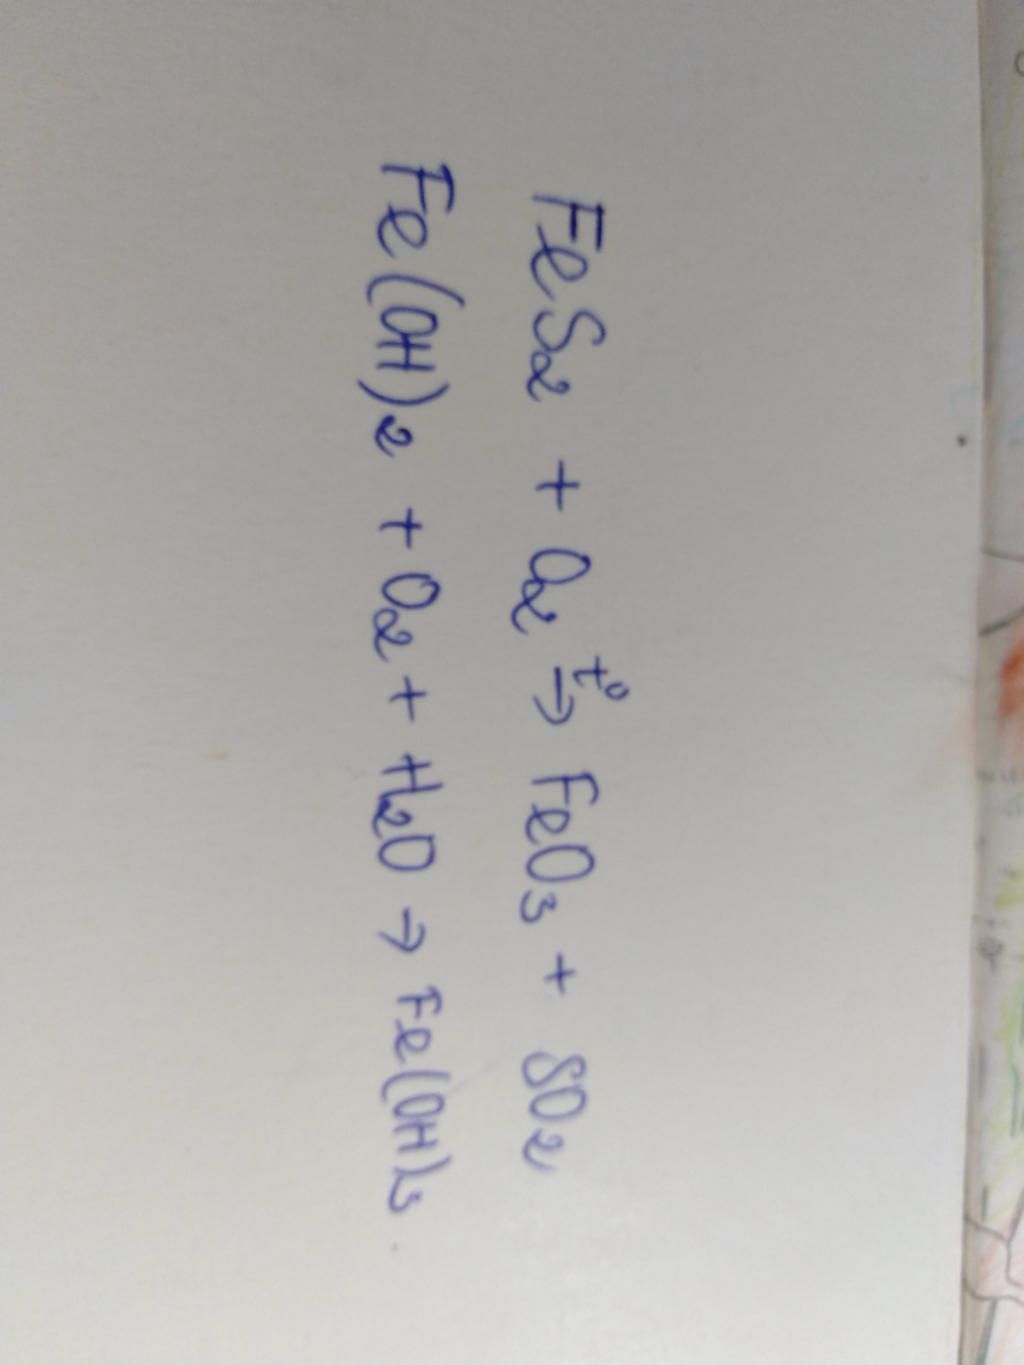 FeS₂ + O₂ →t° FeO₃ + SO₂
Fe(OH)₂ + O₂ + H₂O → Fe(OH)₃